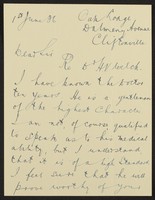 1st June 36
Oak Lodge
Dalmeny Avenue
Giffnock
Dear Sir
Re Dr A P Welch.
I have known the Doctor
ten years. He is a gentleman
of the highest Character.
I am not of course qualified
to speak as to his medical
ability, but I understand
that it is of a high standard
I feel sure that he will
prove worthy of your